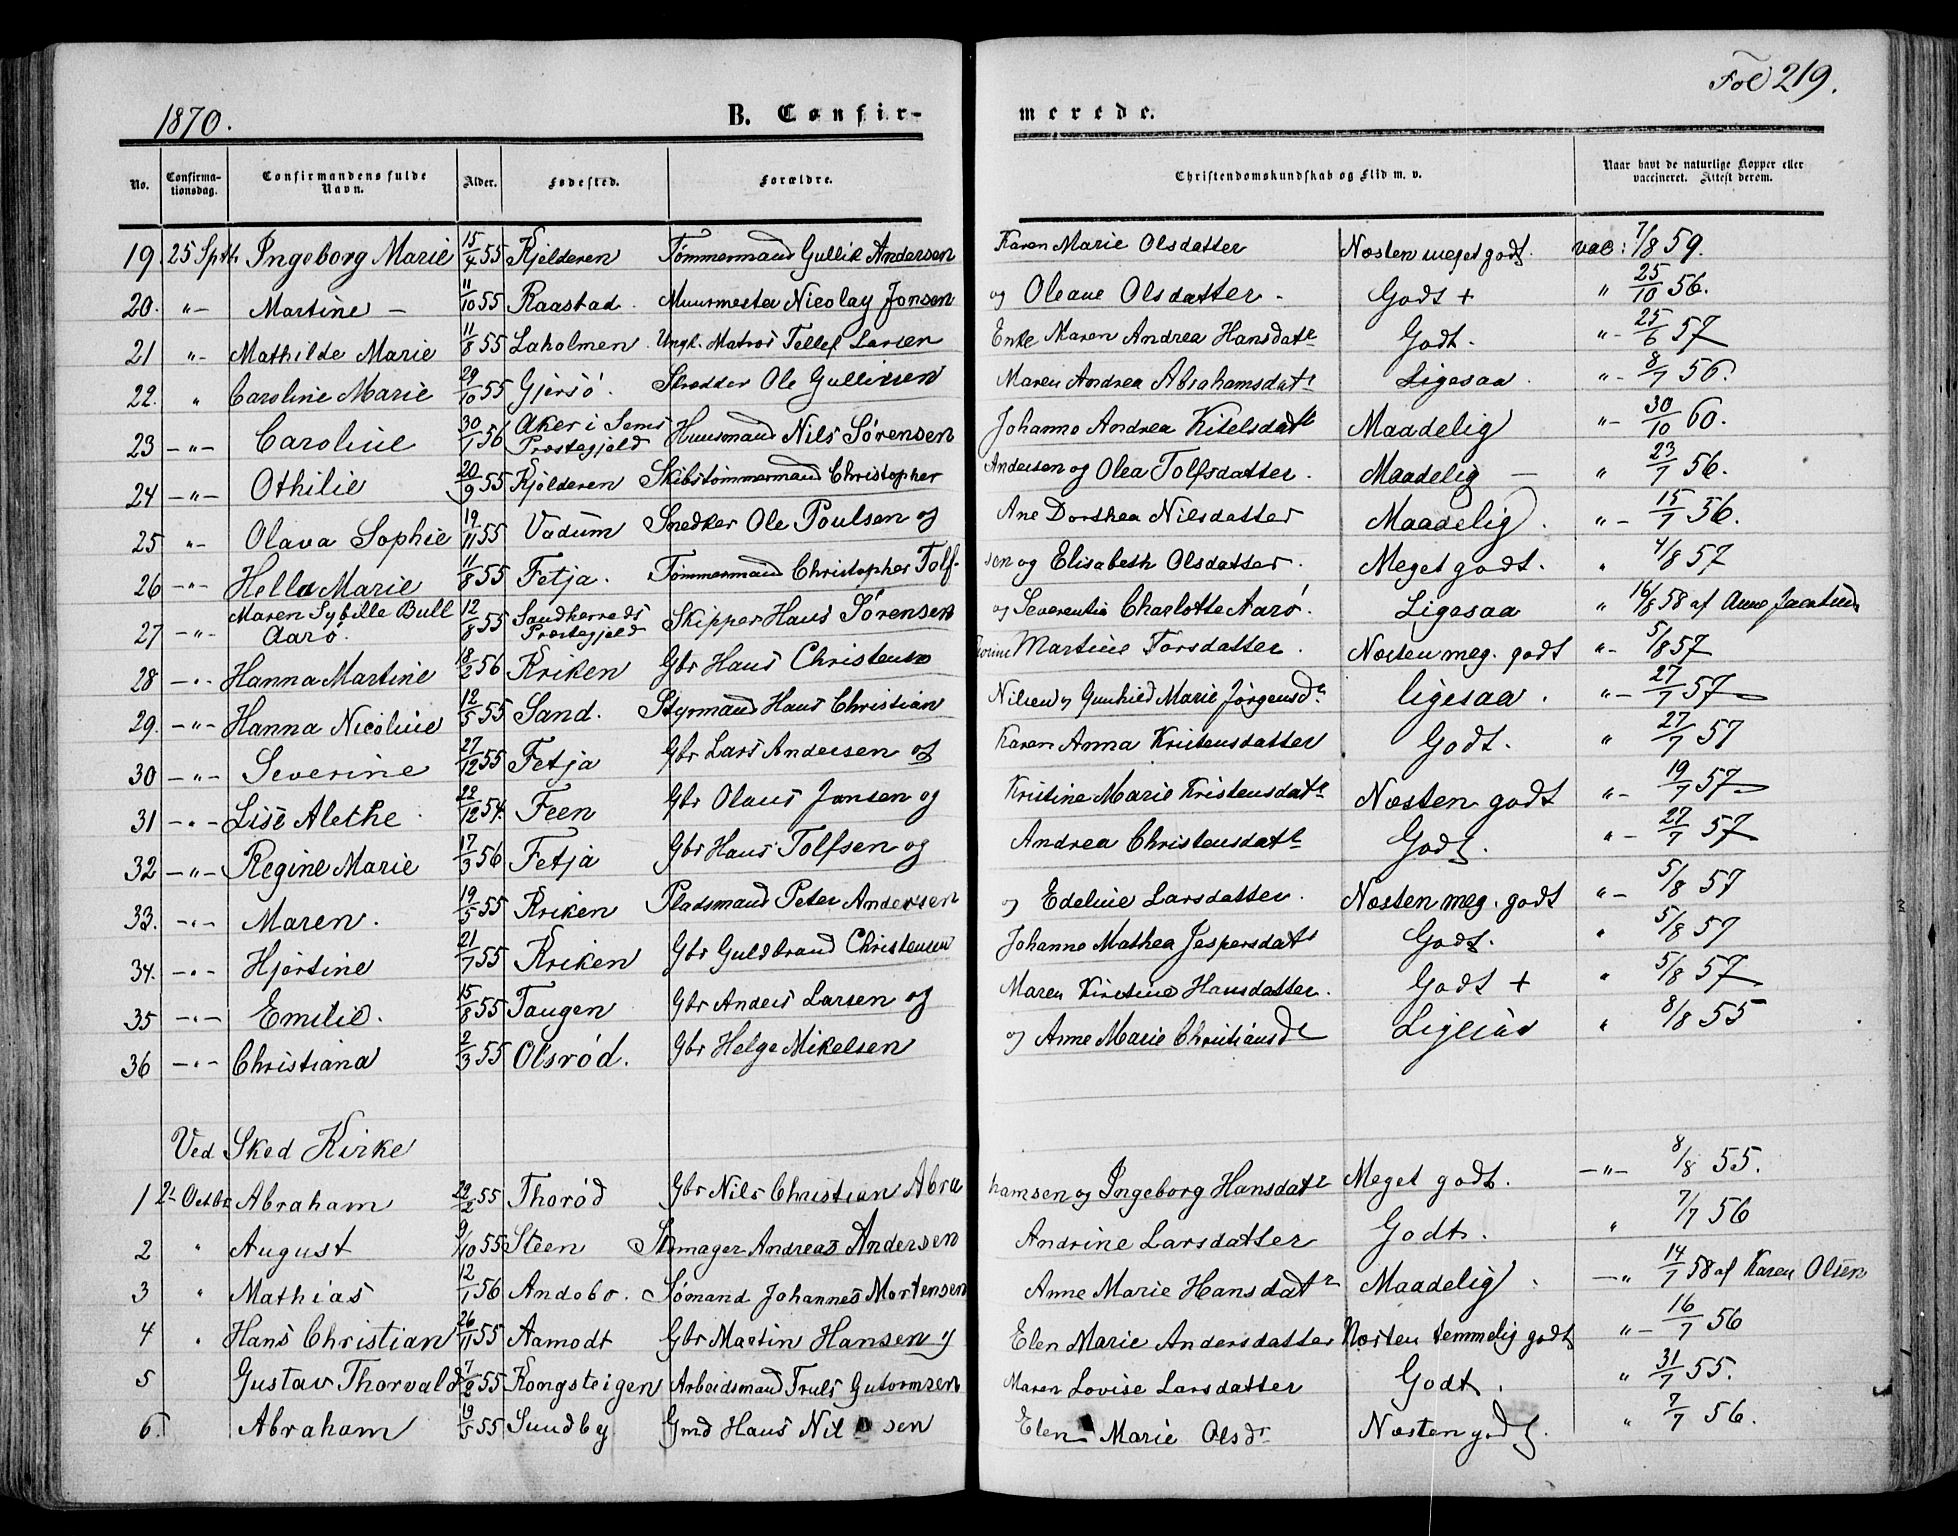 Fol 219.
1870. B. Confirmerede.
No. Confirmationsdag. Confirmandens fulde Navn. Alder. Fødested. Forældre. Christendomskundskab og Flid m. v. Naar havt de naturlige Kopper eller vaccineret. Attest derom.
19. 25 Sptb. Ingeborg Marie 15/4 55 Kjelderen Tømmermand Gullik Andersen Karen Marie Olsdatter Næsten meget godt. vac: 7/8 59.
20. "- Martine - 11/10 55 Raastad. Muurmester Nicolay Jonsen og Oleane Olsdatter. Godt + " 25/10 56.
21 "- Mathilde Marie 11/8 55 Laholmen. Ungk. Matros Tellef Larsen Enke Maren Andrea Hansdatr Godt. "- 25/6 57
22. " Caroline Marie 29/10 55 Gjersø. Skrædder Ole Gulliksen Maren Andrea Abrahamsdatr Ligesaa. "- 8/7 56.
23 -"- Caroline 30/1 56 Aker i Sems Præstegjeld Huusmand Nils Sørensen Johanne Andrea Kitelsdatr Maadelig "- 30/10 60.
24 -"- Othilie 20/9 55 Kjølderen Skibstømmermand Christopher Andersen og Olea Tolfsdatter. Maadelig - " 23/7 56.
25 "- Olava Sophie 19/11 55 Vadum Snedker Ole Poulsen og Ane Dorthea Nilsdatter Maadelig. "- 15/7 56.
26 -"- Hella Marie 11/8 55 Fetja. Tømmermand Christopher Tolfsen og Elisabeth Olsdatter. Meget godt. " 4/8 57
27 -"- Maren Sybille Bull Aarø. 12/8 55 Sandherreds Præstegjeld Skipper Hans Sørensen og Severentia Charlotte Aarø. Ligesaa " 16/8 58 af Anne
28 -"- Hanna Martine 18/2 56 Kriken Gbr Hans Christensen Martine Torsdatter. Næsten meg. godt "- 5/8 57
29. -"- Hanna Nicoline 12/5 55 Sand. Styrmand Hans Christian Nilsen og Gunhild Marie Jørgensdr ligesaa. "- 27/7 57
30 -"- Severine 27/12 55 Fetja Gbr Lars Andersen og Karen Anna Kristensdatter Godt. " 27/7 57
31 -"- Lise Alethe. 22/12 54. Feen Gbr Olaus Jansen og Kristine Marie Kristensdatr Næsten godt "- 19/7 57
32 -"- Regine Marie 17/3 56 Fetja Gbr Hans Tolfsen og Andrea Christensdatr Godt. "- 27/7 57
33. -"- Maren. 19/5 55 Kriken Pladsmand Peter Andersen og Edeline Larsdatter. Næsten meg. godt "- 5/8 57
34. -"- Hjørtine 21/7 55 Kriken Gbr Guldbrand Christensen Johanne Mathea Jespersdatr Godt. " 5/8 57
35 -"- Emilie. 15/8 55 Tangen Gbr Anders Larsen og Maren Kirstine Hansdatter. Godt + " 5/8 57
36 -"- Christiana 2/3 55 Olsrød. Gbr Helge Mikelsen og Anne Marie Christiansdr Ligesaa " 8/8 55
Ved Sked Kirke
1 2- Octbr Abraham 29/2 55 Thorød Gbr Nils Christian Abrahamsen og Ingeborg Hansdatr Meget godt. -"- 8/8 55.
2 " August 9/10 55 Steen Skomager Andreas Andersen Andrine Larsdatter Godt. " 7/7 56
3 " Mathias 12/1 56 Andebo. Sømand Johannes Mortensen Anne Marie Hansdatr Maadelig. -" 14/7 58 af Karen Olsen
4 " Hans Christian 26/11 55 Aamodt Gbr Martin Hansen og Elen Marie Andersdatter Næsten temmelig godt "- 16/7 56
5 Gustav Thorvald 7/8 55 Kongsteigen Arbeidsmand Truls Gutormsen Maren Lovise Larsdatter Godt. " 31/7 55.
6. Abraham 19/5 55 Sundby Gmd Hans Nilsen Elen Marie Olsdr Næsten godt. " 7/7 56.